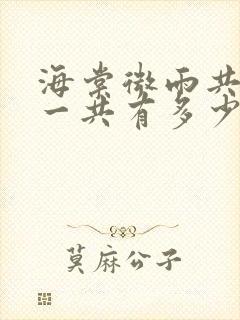 海棠微雨共
一共有多少
莫麻公子